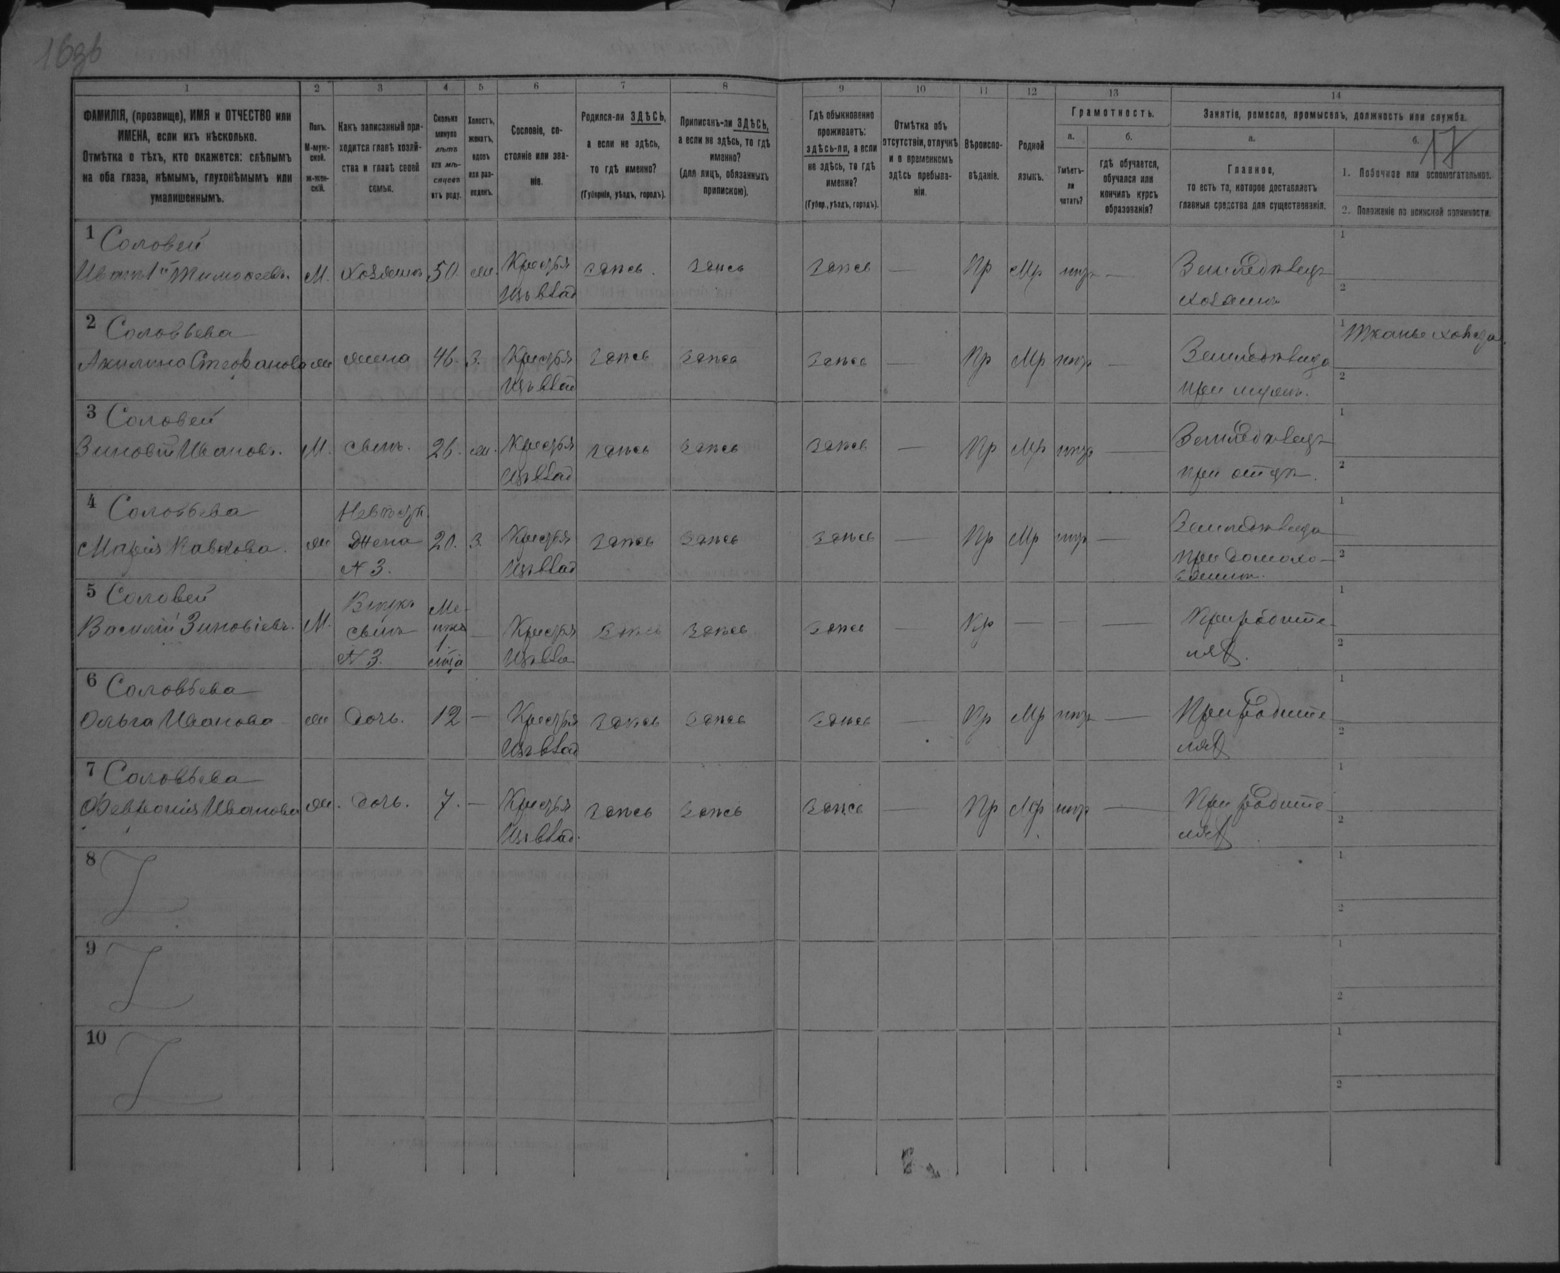 16об
17
1 2 3 4 5 6 7 8 9 10 11 12 13 14
ФАМИЛІЯ, (прозвище), ИМЯ и ОТЧЕСТВО или
ИМЕНА, если ихъ нѣсколько.
Отмѣтка о тѣхъ, кто окажется: слѣпымъ
на оба глаза, нѣмымъ, глухонѣмымъ или
умалишеннымъ.
Полъ.
М-муж-
ской.
ж-жен-
скій.
Какъ записанный при-
ходится главѣ хозяй-
ства и главѣ своей
семьи.
Сколько
минуло
лѣтъ
или мѣ-
сяцевъ
отъ роду.
Холостъ,
женатъ,
вдовъ
или раз-
веденъ.
Сословіе, со-
стояніе или зва-
ніе.
Родился-ли ЗДѢСЬ,
а если не здѣсь,
то гдѣ именно?
(Губернія, уѣздъ, городъ).
Приписанъ-ли ЗДѢСЬ,
а если не здѣсь, то гдѣ
именно?
(для лицъ, обязанныхъ
припискою).
Гдѣ обыкновенно
проживаетъ:
здѣсь-ли, а если
не здѣсь, то гдѣ
именно?
(Губер., уѣздъ, городъ).
Отмѣтка объ
отсутствіи, отлучкѣ
и о временномъ
здѣсь пребыва-
ніи.
Вѣроиспо-
вѣданіе.
Родной
языкъ.
Грамотность.
а.
Умѣетъ-
ли
читать?
б.
гдѣ обучается,
обучался или
кончилъ курсъ
образованія?
Занятіе, ремесло, промыселъ, должность или служба.
а.
Главное,
то есть то, которое доставляетъ
главныя средства для существованія.
б.
1. Побочное или вспомогательное.
2. Положеніе по воинской повинности.
1 Соловей
Иванъ 1й Тимофеевъ М. хозяинъ 50 ж. Крестья здѣсь здѣсь здѣсь — Пр Мр нгр — Земледѣлецъ
Изъ влад хозяинъ
2 Соловьева
Акилина Стефанова ж жена 46 з. Крестья здѣсь здѣсь здѣсь — Пр Мр нгр — Земледѣлица Тканье холста
Изъ влад при мужѣ.
3 Соловей
Зиновій Ивановъ. М. сынъ. 26. ж. Крестья здѣсь здѣсь здѣсь — Пр Мр нгр — Земледѣлецъ
Изъ влад при отцѣ.
4 Соловьева
Марія Павлова. ж Невѣстк. жена N 3. 20. з Крестья здѣсь здѣсь здѣсь — Пр Мр нгр — Земледѣлица
Изъ влад при домохо-
зяинѣ.
5 Соловей
Василій Зиновіевъ. М. Внукъ сынъ N 3. — Крестья здѣсь здѣсь здѣсь — Пр — — — При родите
Изъ вла ляхъ.
6 Соловьева
Ольга Иванова ж дочь. 12 — Крестья здѣсь здѣсь здѣсь — Пр Мр нгр — При родите
Изъ влад ляхъ
7 Соловьева
Февронія Иванова ж. дочь. 7. — Крестья здѣсь здѣсь здѣсь — Пр Мр нгр — При родите
Изъ влад. ляхъ
8
9
10